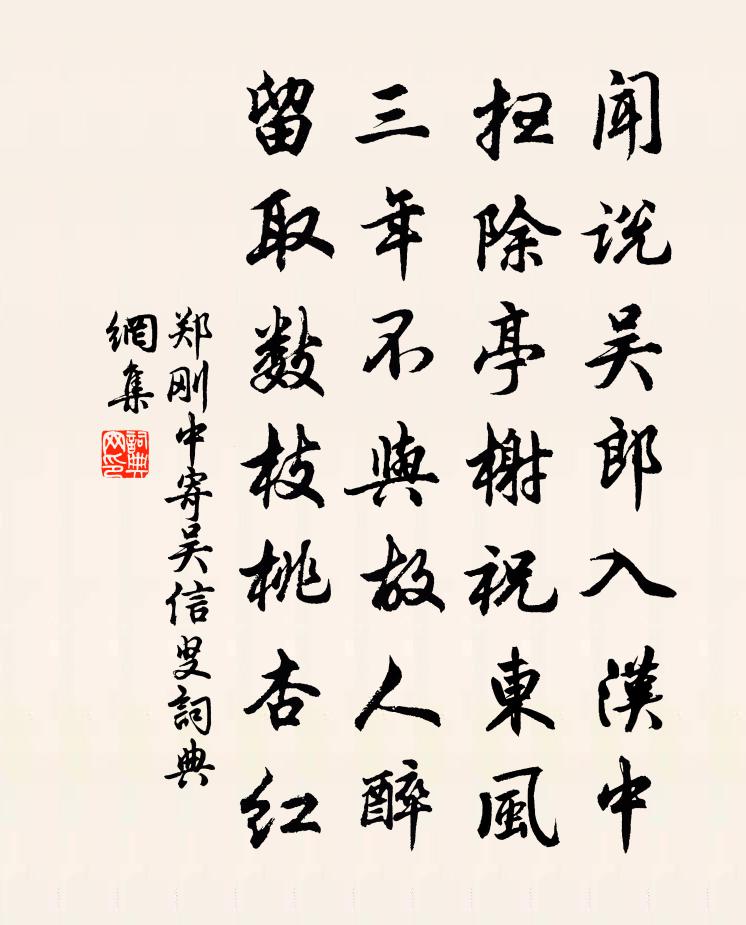 闻说吴郎入漢中
扫除亭榭祝東風
三年不與故人醉
留取数枝桃杏红
郑刚中寄吴信叟詞典
網集
詞典网印